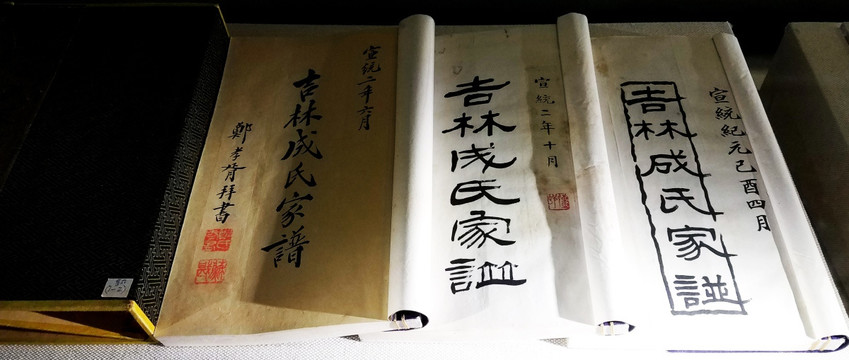 宣統紀元己酉四月
吉林成氏家譜
宣統二年十月
吉林成氏家譜
宣統二年六月
吉林成氏家譜
鄭孝胥拜書